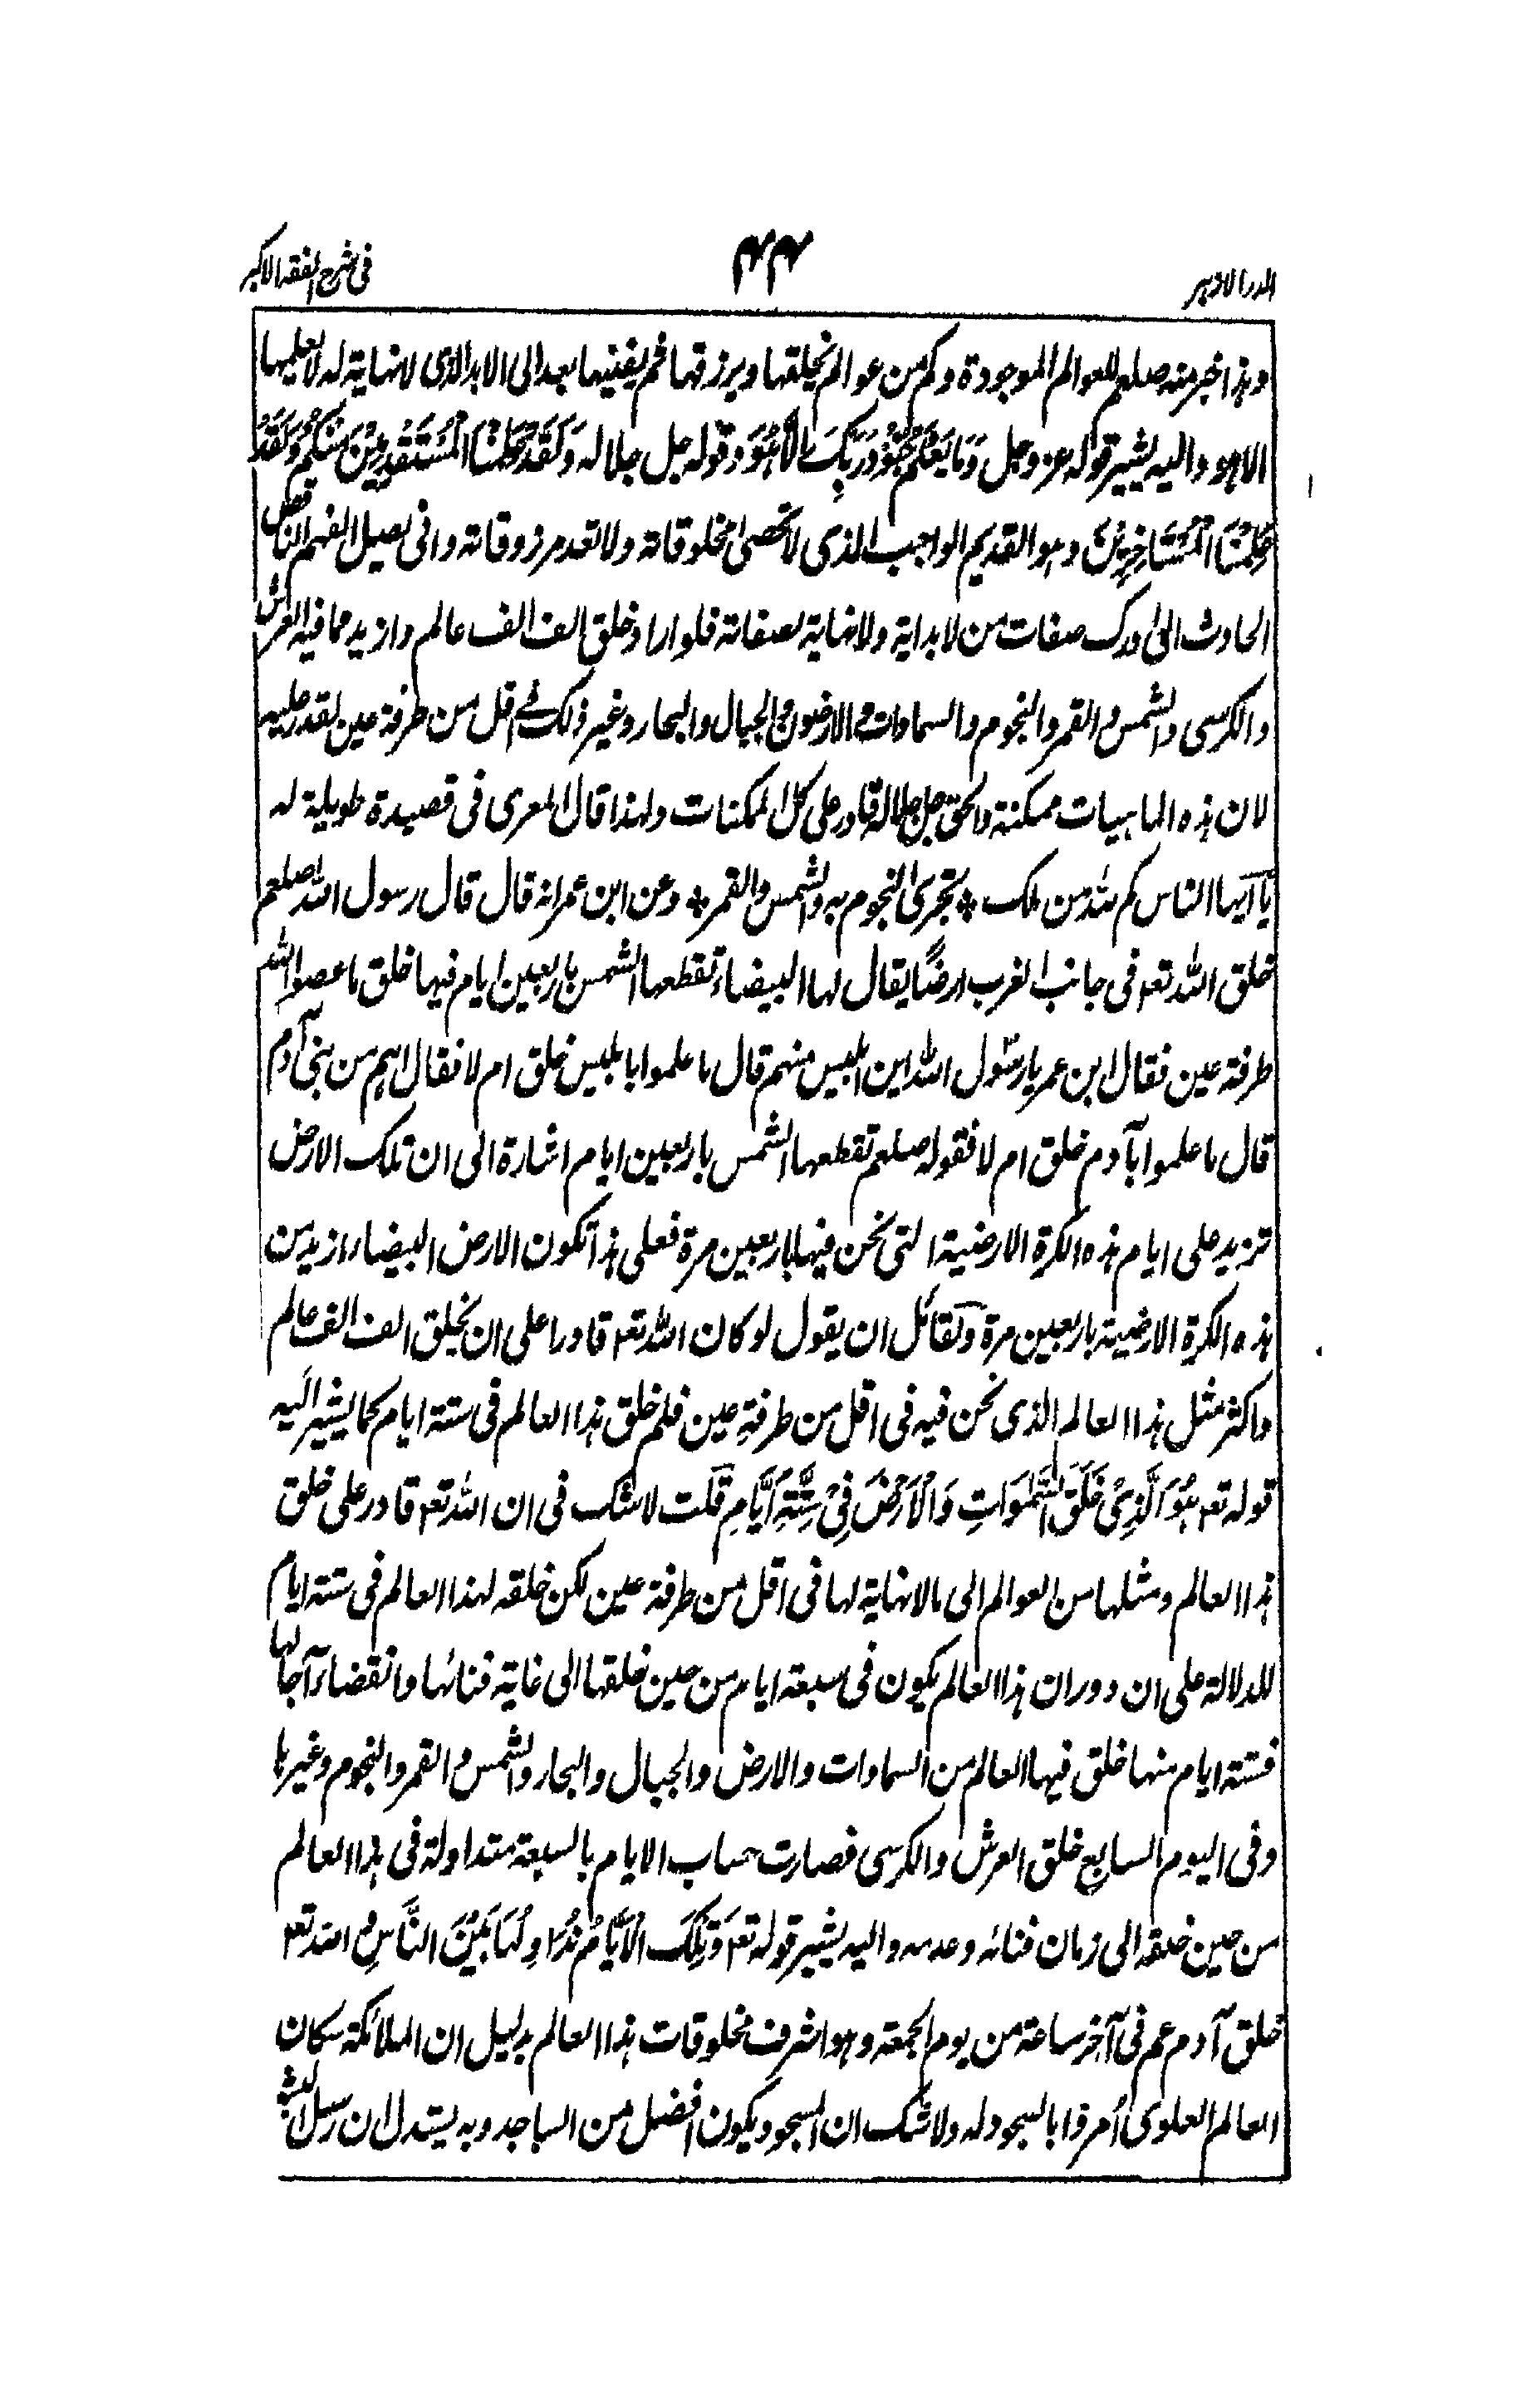 الدر الازہر
۴۴
فی شرح الفقہ الاکبر
وہذا خبر منہ صلعم للعوالم الموجودة وكم من عوالم يخلقها ويرزقها ثم يفنيها بعد الى الابد الذى لا نهاية له لا يعلمها
الا ہو واليه يشير قوله عز وجل وَمَا يَعْلَمُ جُنُوْدَ رَبِّكَ اِلَّا ہُوَ وقوله جل جلاله وَلَقَدْ عَلِمْنَا الْمُسْتَقْدِمِيْنَ مِنْكُمْ وَلَقَدْ
عَلِمْنَا الْمُسْتَاخِرِيْنَ وہو القديم الواجب الذى لا تحصى مخلوقاته ولا تعد مرزوقاته وانى يصل الفهم الناقص
الحادث الى درك صفات من لا بداية ولا نهاية لصفاته فلو اراد خلق الف الف عالم وازيد مما فيه العرش
والكرسى والشمس والقمر والنجوم والسماوات والارضون والجبال والبحار وغير ذلك فے اقل من طرفة عين لقدر عليه
لان ہذه الماہيات ممكنة والحق جل جلاله قادر على كل الممكنات ولهذا قال المعرى فى قصيدة طويلة له
يَا اَيها الناس كم لله من ملك * تجرى النجوم به والشمس والقمر * وعن ابن عمر انه قال قال رسول الله صلعم
خلق الله تعـ فى جانب الغرب ارضًا يقال لها البيضاء تقطعها الشمس باربعين ايام فيها خلق ما عصوا الله
طرفة عين فقال ابن عمر يا رسُول الله اين ابليس منهم قال ما علموا بابليس خلق ام لا فقال اہم من بنى آدم
قال ما علموا بآدم خلق ام لا فقوله صلعم تقطعها الشمس باربعين ايام اشارة الى ان تلك الارض
تزيد على ايام ہذه الكرة الارضية التى نحن فيها باربعين مرة فعلى ہذا تكون الارض البيضاء ازيد من
ہذه الكرة الارضية باربعين مرة ولقائل ان يقول لو كان الله تعـ قادرا على ان يخلق الف الف عالم
واكثر مثل ہذا العالم الذى نحن فيه فى اقل من طرفةِ عين فلم خلق ہذا العالم فى ستة ايام كما يشير اليه
قوله تعـ ہُوَ الَّذِىْ خَلَقَ السَّمٰوَاتِ وَالْاَرْضَ فِىْ سِتَّةِ اَيَّامٍ قلت لا شك فى ان الله تعـ قادر على خلق
ہذا العالم ومثلها من العوالم الى ما لا نهاية لها فى اقل من طرفة عين لكن خلقه لهذا العالم فى ستة ايام
للدلالة على ان دوران ہذا العالم يكون فى سبعة ايام من حين خلقها الى غاية فنائها وانقضاء آجالها
فستة ايام منها خلق فيها العالم من السماوات والارض والجبال والبحار والشمس والقمر والنجوم وغيرہا
وفى اليوم السابع خلق العرش والكرسى فصارت حساب الايام بالسبعة متداولة فى ہذا العالم
من حين خلقه الى زمان فنائه وعدمه واليه يشير قوله تعـ وَتِلْكَ الْاَيَّامُ نُدَاوِلُهَا بَيْنَ النَّاسِ والله تعـ
خلق آدم عم فى آخر ساعة من يوم الجمعة وہو اشرف مخلوقات ہذا العالم بدليل ان الملائكة سكان
العالم العلوى اُمروا بالسجود له ولا شك ان المسجود يكون افضل من الساجد وبه يستدل ان رسل البشر